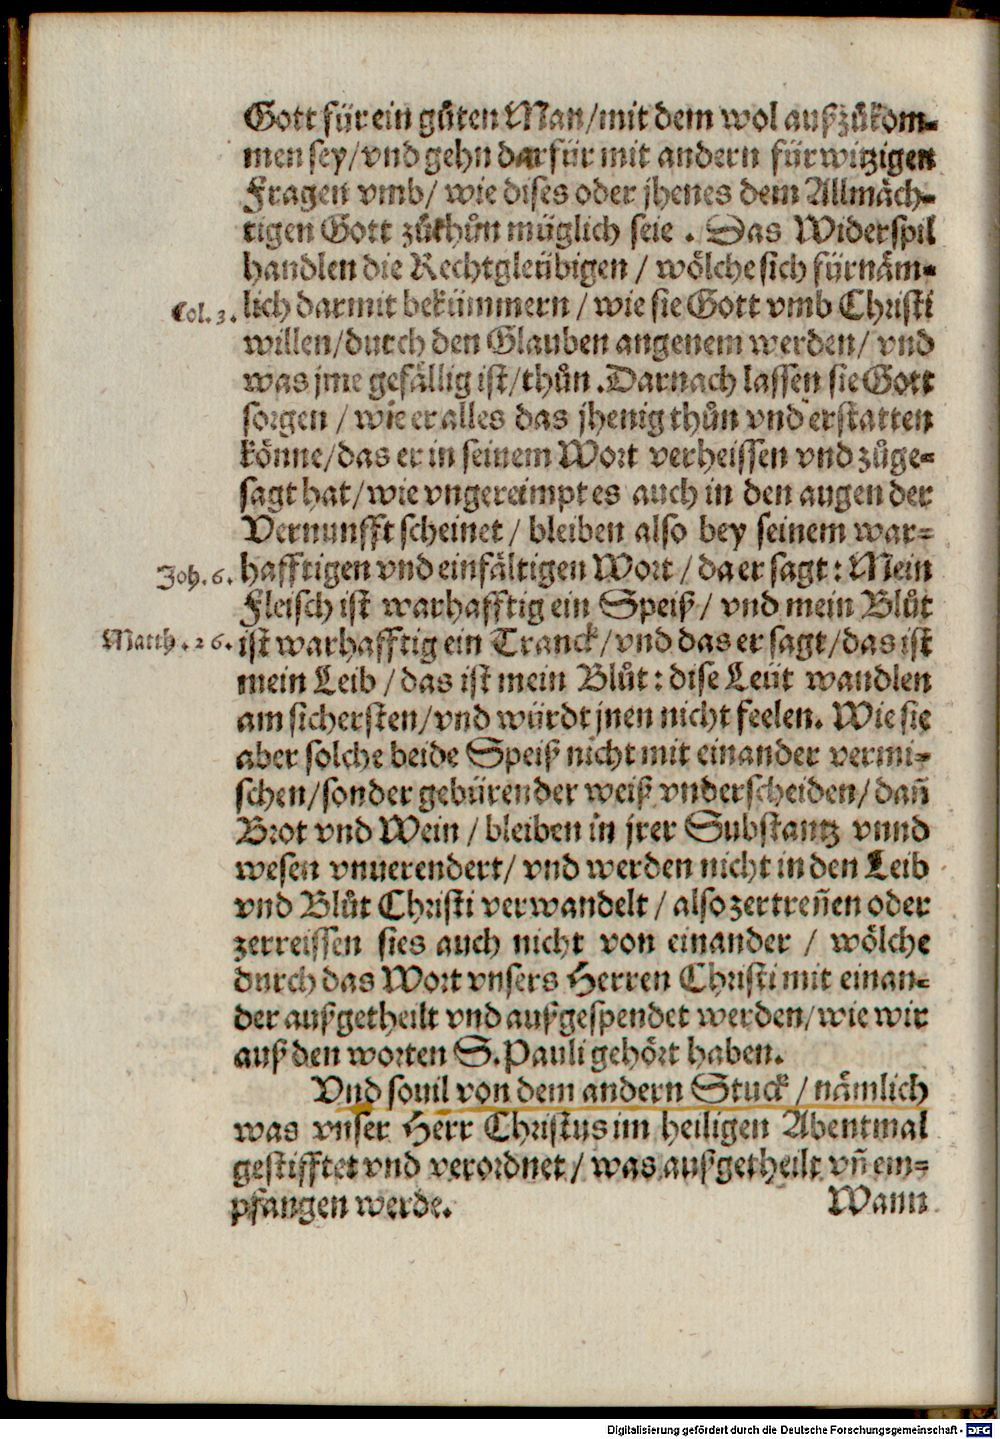 Gott für ein gůten Man/mit dem wol außzůkom-
men sey/vnd gehn darfür mit andern fürwitzigen
Fragen vmb/ wie dises oder jhenes dem Allmäch-
tigen Gott zůthůn müglich seie . Das Widerspil
handlen die Rechtgleübigen / wölche sich fürnäm-
Col. 3. lich darmit bekümmern / wie sie Gott vmb Christi
willen/durch den Glauben angenem werden/ vnd
was jme gefällig ist/thůn .Darnach lassen sie Gott
sorgen / wie er alles das jhenig thůn vnd erstatten
könne/das er in seinem Wort verheissen vnd zůge-
sagt hat/wie vngereimpt es auch in den augen der
Vernunfft scheinet / bleiben also bey seinem war-
Joh. 6. hafftigen vnd einfältigen Wort / da er sagt : Mein
Fleisch ist warhafftig ein Speiß / vnd mein Blůt
Matth. 26. ist warhafftig ein Tranck/vnd das er sagt/das ist
mein Leib / das ist mein Blůt : dise Leüt wandlen
am sichersten/vnd würdt jnen nicht feelen. Wie sie
aber solche beide Speiß nicht mit einander vermi-
schen/sonder gebürender weiß vnderscheiden/ dañ
Brot vnd Wein / bleiben in jrer Substantz vnnd
wesen vnuerendert/ vnd werden nicht in den Leib
vnd Blůt Christi verwandelt / also zertreñen oder
zerreissen sies auch nicht von einander / wölche
durch das Wort vnsers Herren Christi mit einan-
der außgetheilt vnd außgespendet werden/wie wir
auß den worten S. Pauli gehört haben.
Vnd souil von dem andern Stuck / nämlich
was vnser Herr Christus im heiligen Abentmal
gestifftet vnd verordnet / was außgetheilt vñ em-
pfangen werde. Wann
Digitalisierung gefördert durch die Deutsche Forschungsgemeinschaft - DFG